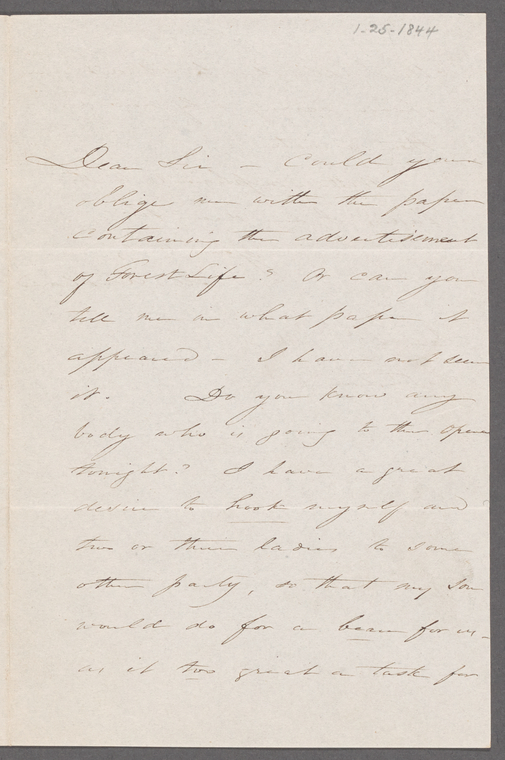 1-25-1844
Dear Sir — Could you
oblige me with the paper
containing the advertisement
of Forest Life? Or can you
tell me in what paper it
appeared — I have not seen
it. Do you know any
body who is going to the opera
tonight? I have a great
desire to hook myself and
two or three ladies to some
other party, so that my son
would do for a beau for us —
as it too great a task for